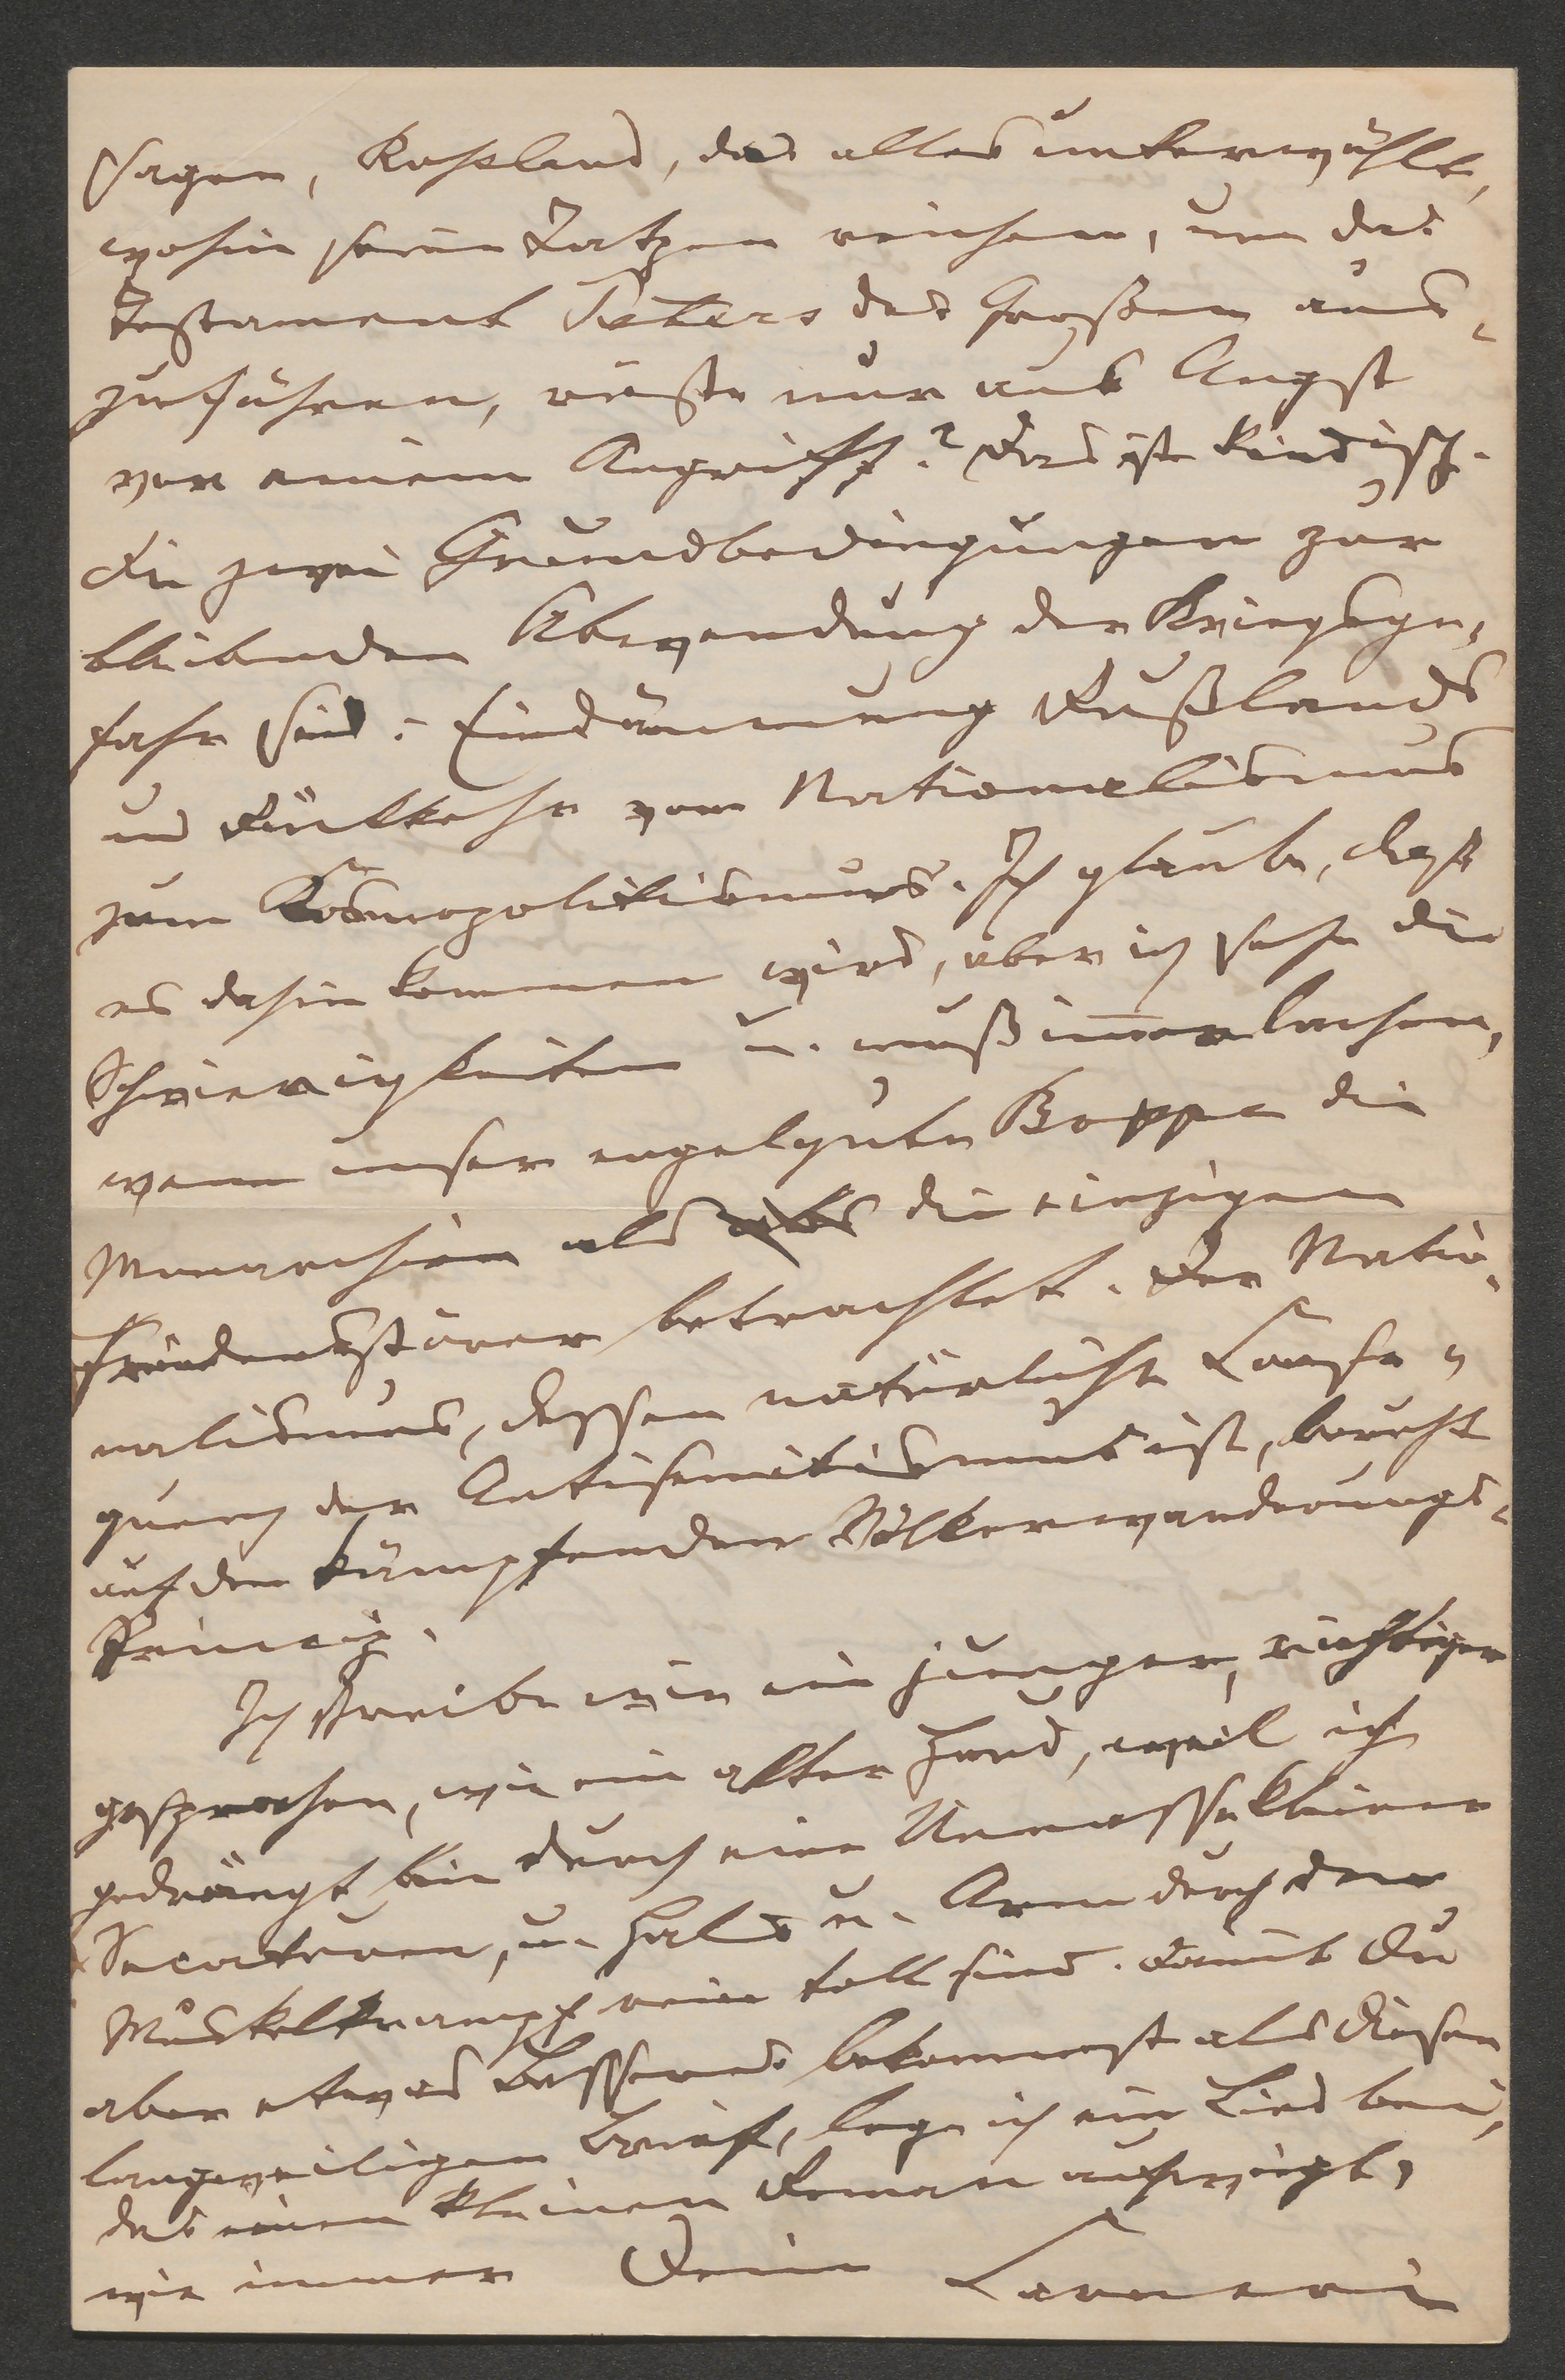 sagen, Rußland, das alles unterwühlt,
wohin seine Tatzen reichen, um das
Testament Peters des Großen aus-
zuführen, rüste nur aus Angst
vor einem Angriff? Das ist kindisch.
Die zwei Grundbedingungen zur
bleibenden Abwendung der Kriegsge-
fahr sind: Eindämmung Rußlands
und Rückkehr vom Nationalismus
zum Kosmopolitismus. Ich glaube, daß
es dahin kommen wird, aber ich sehe die
Schwierigkeiten u. muß immer lachen,
wenn unser engelgute Boppe die
Monarchien als die einzigen
Friedensstörer betrachtet. Der Natio-
nalismus, dessen natürlichste Conse-
quenz der Antisemitismus ist, beruht
auf dem kämpfenden Völkerwanderungs-
Princip.
Ich schreibe wie ein junger, richtiger
gesprochen, wie ein alter Hund, weil ich
gedrängt bin durch eine Unmasse kleiner
u. Hals u. Arm durch den
Muskelkrampf rein toll sind. Damit Du
aber etwas Besseres bekommst als diesen
langweiligen Brief, lege ich ein Lied bei,
das einen kleinen Roman aufwiegt,
wie immer Dein Carneri